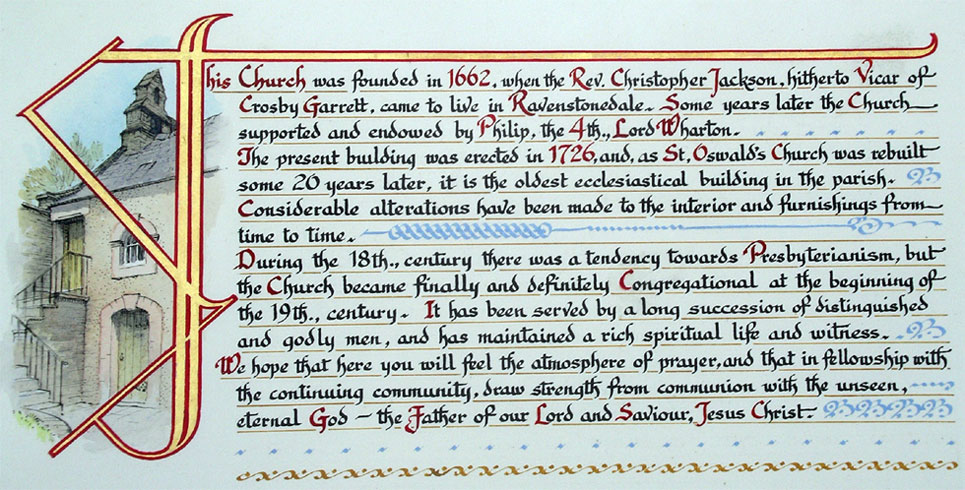 This Church was founded in 1662, when the Rev. Christopher Jackson, hitherto Vicar of
Crosby Garrett, came to live in Ravenstonedale. Some years later the Church
supported and endowed by Philip, the 4th., Lord Wharton.
The present building was erected in 1726, and, as St. Oswald's Church was rebuilt
some 20 years later, it is the oldest ecclesiastical building in the parish.
Considerable alterations have been made to the interior and furnishings from
time to time.
During the 18th., century there was a tendency towards Presbyterianism, but
the Church became finally and definitely Congregational at the beginning of
the 19th., century. It has been served by a long succession of distinguished
and godly men, and has maintained a rich spiritual life and witness.
We hope that here you will feel the atmosphere of prayer, and that in fellowship with
the continuing community, draw strength from communion with the unseen,
eternal God – the Father of our Lord and Saviour, Jesus Christ.